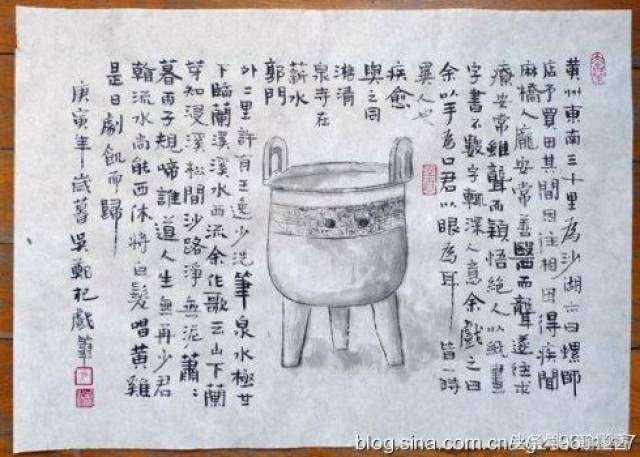 黄州東南三十里為沙湖亦曰螺師
店予買田其間因往相田得疾聞
麻橋人龐安常善醫而聾遂往求
療安常雖聾而穎悟絕人以紙畫
字書不數字輒深人意余戲之曰
余以手為口君以眼為耳皆一時
異人也
疾愈
與之同
游清
泉寺在
蕲水
郭門
外二里許有王逸少洗筆泉水極甘
下臨蘭溪溪水西流余作歌云山下蘭
芽短浸溪松間沙路淨無泥蕭〻
暮雨子規啼誰道人生無再少君
流水尚能西休將白髮唱黄雞
是日劇飲而歸
庚寅年歲暮吳鄭杞戲筆
blog.sina.com.cn